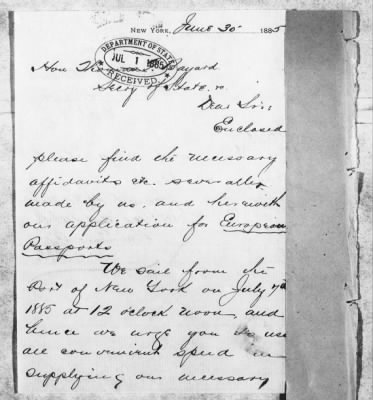 New York, June 30 1885
DEPARTMENT OF STATE
JUL 1 1885
RECEIVED.
Hon Thomas Bayard
Secry of State.
Dear Sir:
Enclosed
please find the necessary
affidavits etc. severally
made by us. and herewith
our application for European
Passports
We sail from the
Port of New York on July 7th
1885 at 12 oclock noon, and
hence we urge you to use
all convenient speed in
supplying our necessary